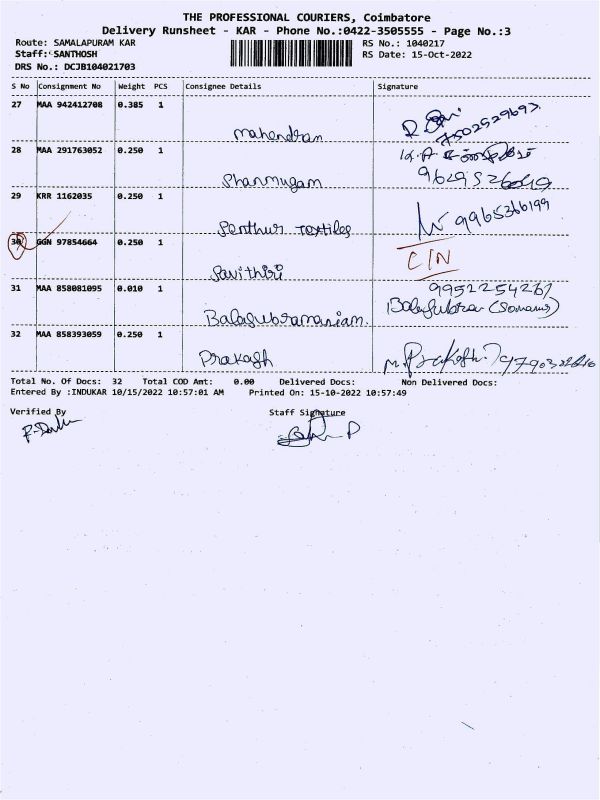 THE PROFESSIONAL COURIERS, Coimbatore
Delivery Runsheet - KAR - Phone No.:0422-3505555 - Page No.:3
Route: SAMALAPURAM KAR RS No.: 1040217
Staff: SANTHOSH RS Date: 15-Oct-2022
DRS No.: DCJB104021703
S No Consignment No Weight PCS Consignee Details Signature
27 MAA 942412708 0.385 1
Mahendran 7502529693
28 MAA 291763052 0.250 1
Shanmugam
29 KRR 1162035 0.250 1
Senthur Textiles 9965366199
30 GGN 97854664 0.250 1 C/N
Savithiri
31 MAA 858081095 0.010 1 9952254261
Balasubramaniam.
32 MAA 858393059 0.250 1
Prakash M. Prakash.
Total No. Of Docs: 32 Total COD Amt: 0.00 Delivered Docs: Non Delivered Docs:
Entered By :INDUKAR 10/15/2022 10:57:01 AM Printed On: 15-10-2022 10:57:49
Verified By Staff Signature